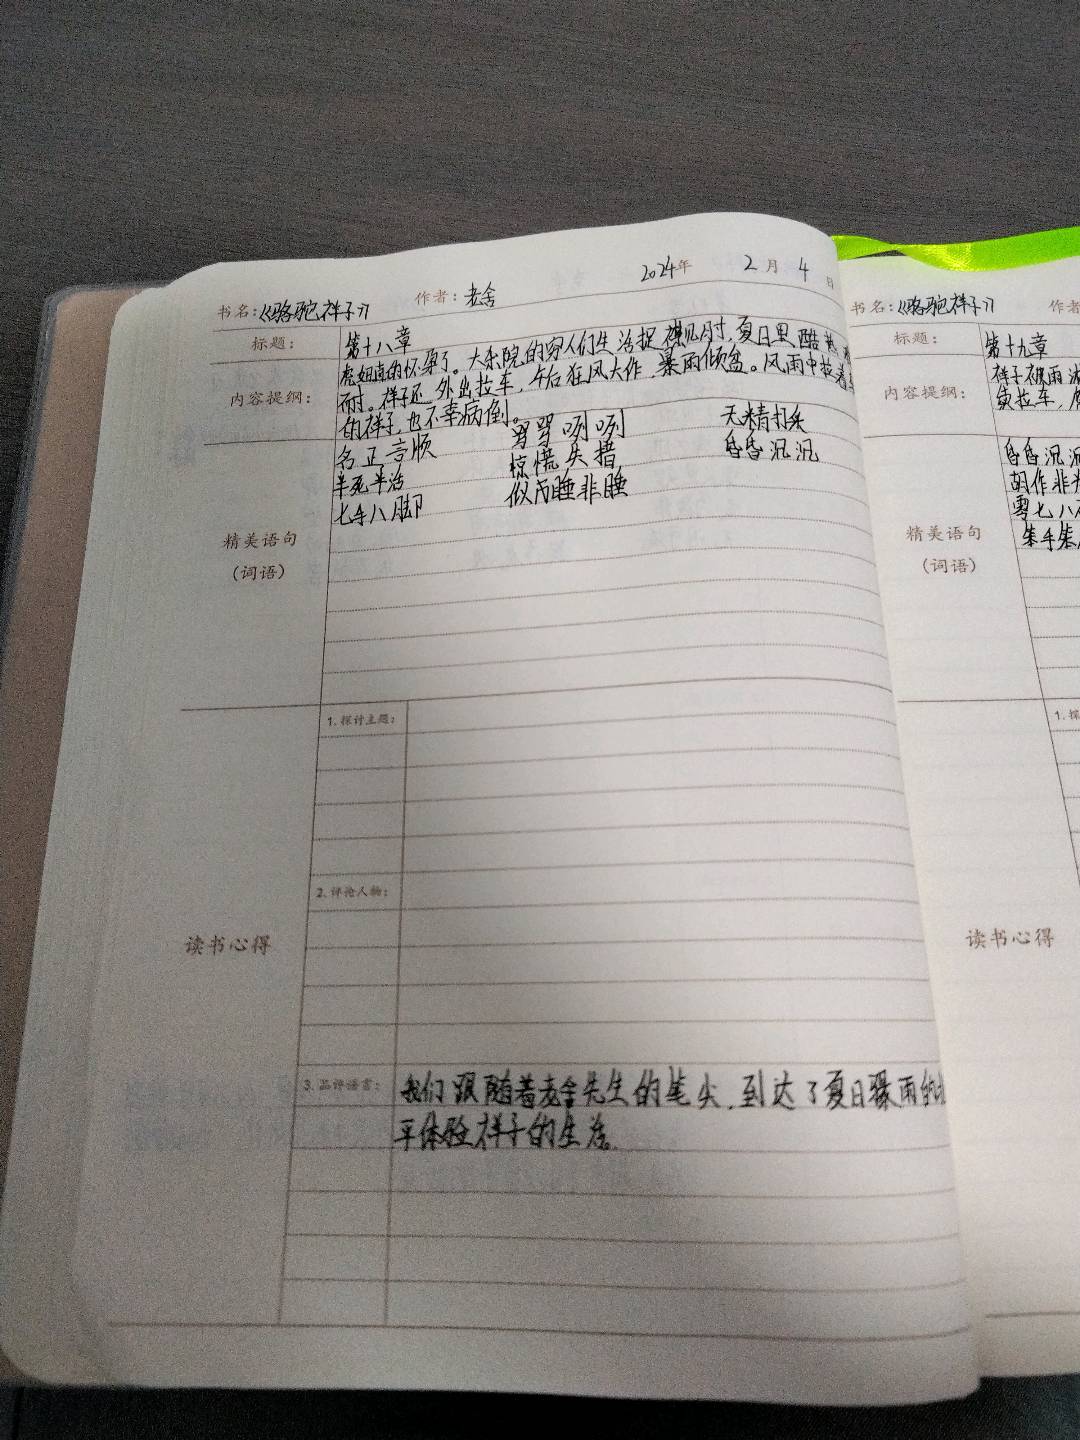 书名:《骆驼祥子》 作者:老舍 2024年 2月 4日
标题: 第十八章
内容提纲: 虎妞真的怀孕了。大杂院的穷人们生活捉襟见肘,夏日里酷热
耐。祥子还外出拉车,午后狂风大作,暴雨倾盆。风雨中拉着
的祥子,也不幸病倒。
精美语句
(词语)
名正言顺 骂骂咧咧 无精打采
半死半活 惊慌失措 昏昏沉沉
七手八脚 似睡非睡
读书心得
1.探讨主题:
2.评论人物:
3.品评语言: 我们跟随着老舍先生的笔尖,到达了夏日暴雨的
平体验祥子的生活。
书名:《骆驼祥子》 作者
标题: 第十九章
内容提纲: 祥子被雨
拉车,
精美语句
(词语)
昏昏沉沉
胡作非
零七八
笨手笨
读书心得
1.探